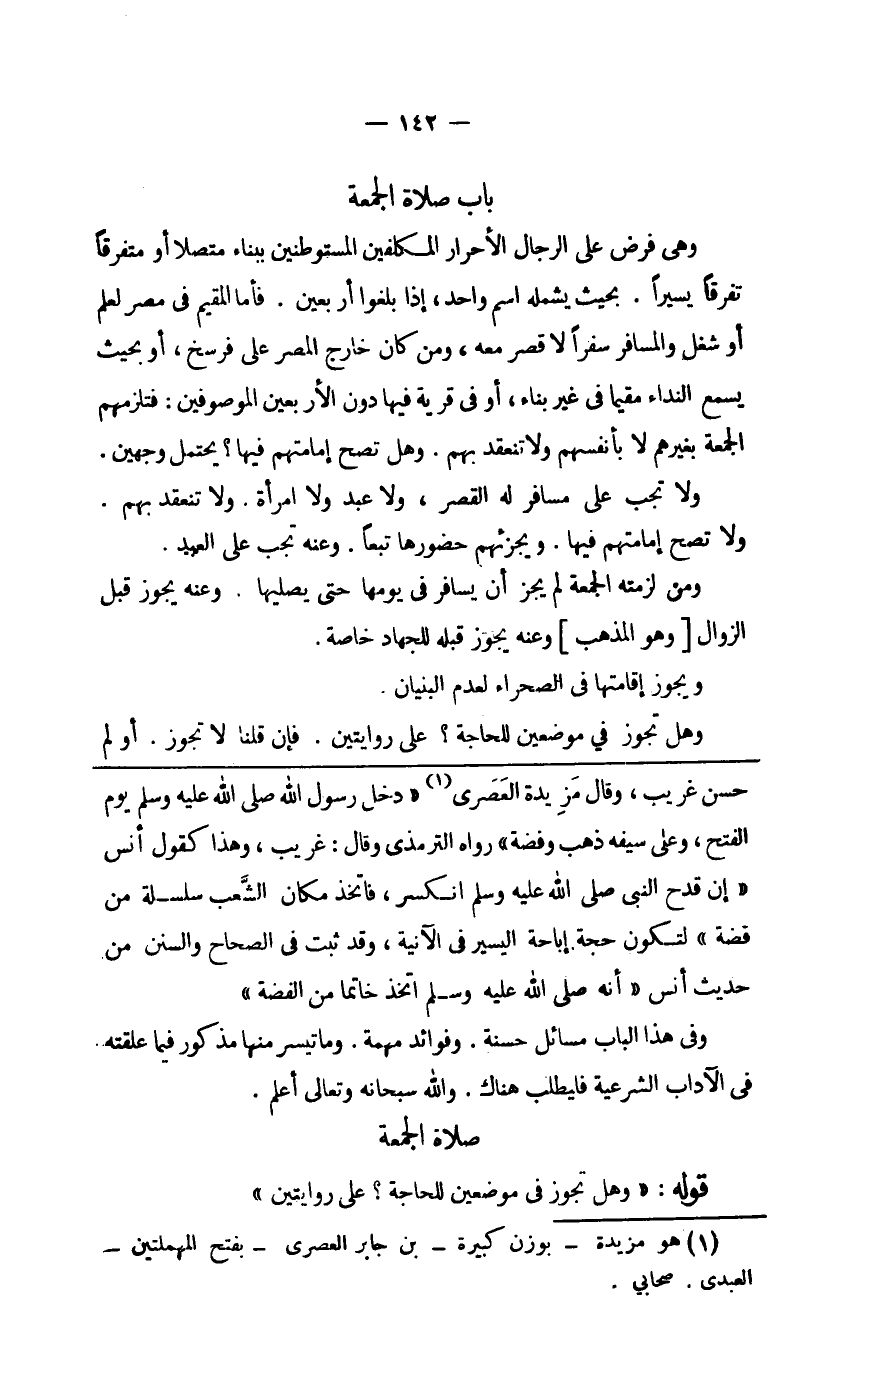 — ١٤٢ —
باب صلاة الجمعة
وهى فرض على الرجال الأحرار المكلفين المستوطنين ببناء متصلا أو متفرقاً
تفرقاً يسيراً . بحيث يشمله اسم واحد ، إذا بلغوا أربعين . فأما المقيم فى مصر لعلم
أو شغل والمسافر سفراً لا قصر معه ، ومن كان خارج المصر على فرسخ ، أو بحيث
يسمع النداء مقيما فى غير بناء ، أو فى قرية فيها دون الأربعين الموصوفين : فتلزمهم
الجمعة بغيرهم لا بأنفسهم ولا تنعقد بهم . وهل تصح إمامتهم فيها ؟ يحتمل وجهين .
ولا تجب على مسافر له القصر ، ولا عبد ولا امرأة . ولا تنعقد بهم .
ولا تصح إمامتهم فيها . ويجزئهم حضورها تبعاً . وعنه تجب على العبد .
ومن لزمته الجمعة لم يجز أن يسافر فى يومها حتى يصليها . وعنه يجوز قبل
الزوال [ وهو المذهب ] وعنه يجوز قبله للجهاد خاصة .
ويجوز إقامتها فى الصحراء لعدم البنيان .
وهل تجوز في موضعين للحاجة ؟ على روايتين . فإن قلنا لا تجوز . أو لم
حسن غريب ، وقال مَزِيدة العَصَرى (١) « دخل رسول الله صلى الله عليه وسلم يوم
الفتح ، وعلى سيفه ذهب وفضة » رواه الترمذى وقال : غريب ، وهذا كقول أنس
« إن قدح النبى صلى الله عليه وسلم انكسر ، فاتخذ مكان الشَّعب سلسلة من
فضة » لتكون حجة إباحة اليسير فى الآنية ، وقد ثبت فى الصحاح والسنن من
حديث أنس « أنه صلى الله عليه وسلم اتخذ خاتما من الفضة »
وفى هذا الباب مسائل حسنة . وفوائد مهمة . وماتيسر منها مذكور فيما علقته
فى الآداب الشرعية فليطلب هناك . والله سبحانه وتعالى أعلم .
صلاة الجمعة
قوله : « وهل تجوز فى موضعين للحاجة ؟ على روايتين »
(١) هو مزيدة – بوزن كبيرة – بن جابر العصرى – بفتح المهملتين –
العبدى . صحابي .